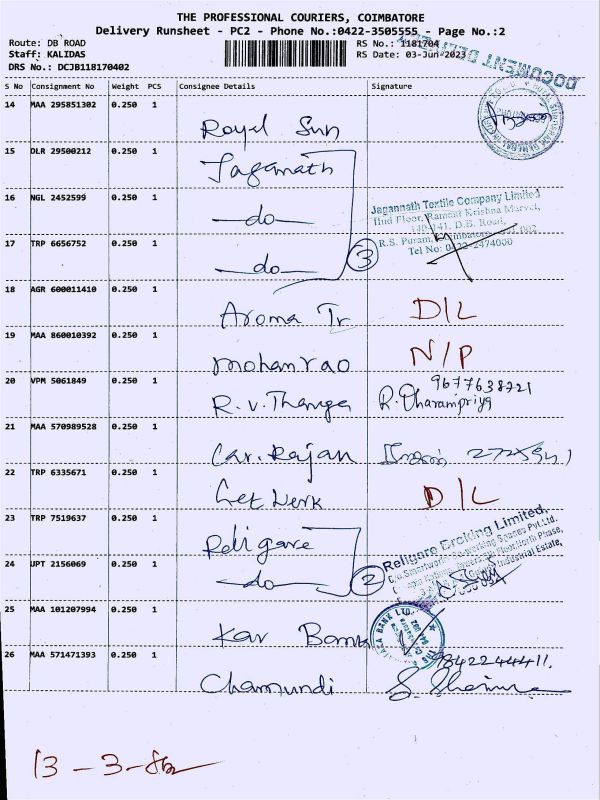 THE PROFESSIONAL COURIERS, COIMBATORE
Delivery Runsheet - PC2 - Phone No.:0422-3505555 - Page No.:2
Route: DB ROAD RS No.: 1181704
Staff: KALIDAS RS Date: 03-Jun-2023
DRS No.: DCJB118170402
DOCUMENT
S No Consignment No Weight PCS Consignee Details Signature
14 MAA 295851302 0.250 1 Royal Sun
15 DLR 29500212 0.250 1 Jaganath
16 NGL 2452599 0.250 1 —do—
Jagannath Textile Company Limited
IInd Floor, Ramani Krishna
D.B. Road,
R.S. Puram, Coimbatore
Tel No: 0422-2474000
17 TRP 6656752 0.250 1 —do— 3
18 AGR 600011410 0.250 1 Aroma Tr D/L
19 MAA 860010392 0.250 1 Mohan rao N/P
20 VPM 5061849 0.250 1 R.V. Thanga 9677638721
R. Dharanipriya
21 MAA 570989528 0.250 1 Car. Rajan
22 TRP 6335671 0.250 1 Get Werk D/L
23 TRP 7519637 0.250 1 Religare
Religare Broking Limited,
24 JPT 2156069 0.250 1 —do— 2
25 MAA 101207994 0.250 1 Kar Bank
26 MAA 571471393 0.250 1 Chamundi 9842244411.
S. Sharma
13 - 3 -